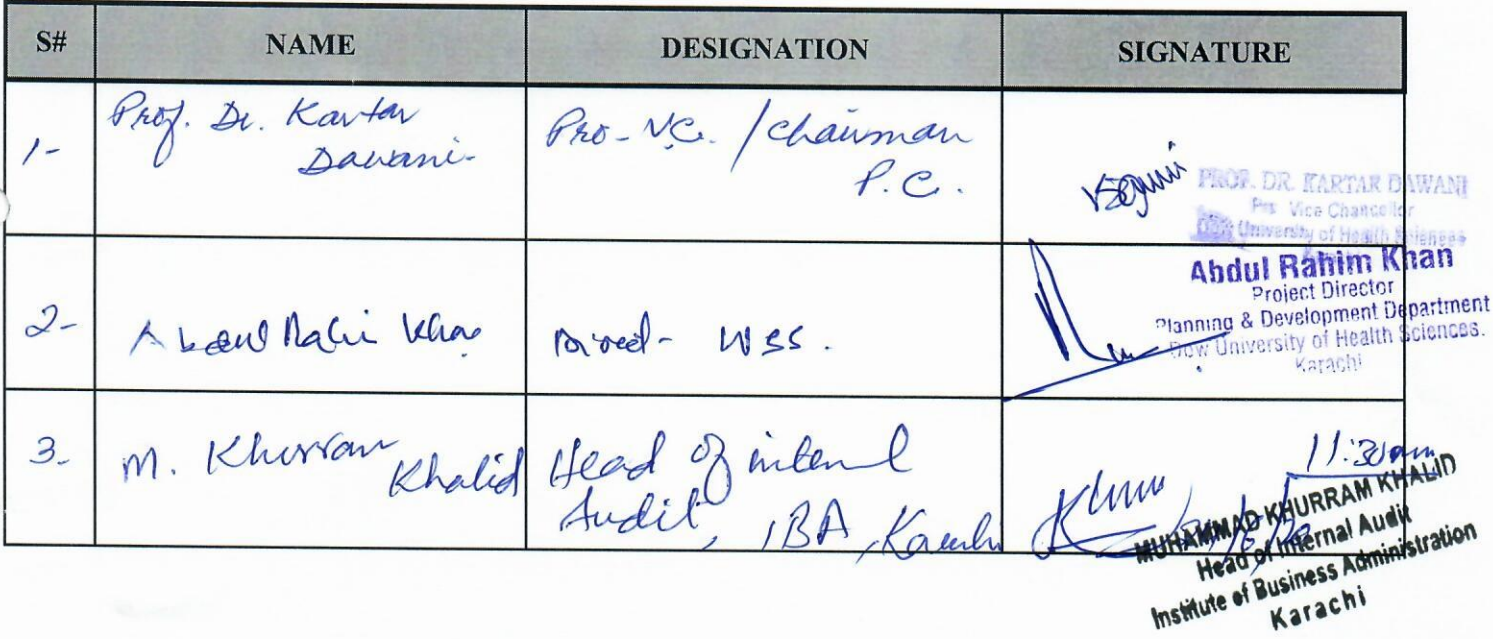 S# NAME DESIGNATION SIGNATURE
1- Prof. Dr. Kartar Pro-V.C. / Chairman
Dawani- P.C.
PROF. DR. KARTAR DAWANI
Pro Vice Chancellor
Dow University of Health Sciences
2- Abdul Rahi Khan Direct- WSS.
Abdul Rahim Khan
Project Director
Planning & Development Department
Dow University of Health Sciences.
Karachi
3- M. Khurram Head of internal
Khalid Audit, IBA, Karachi
11:30am
MUHAMMAD KHURRAM KHALID
Head of Internal Audit
Institute of Business Administration
Karachi